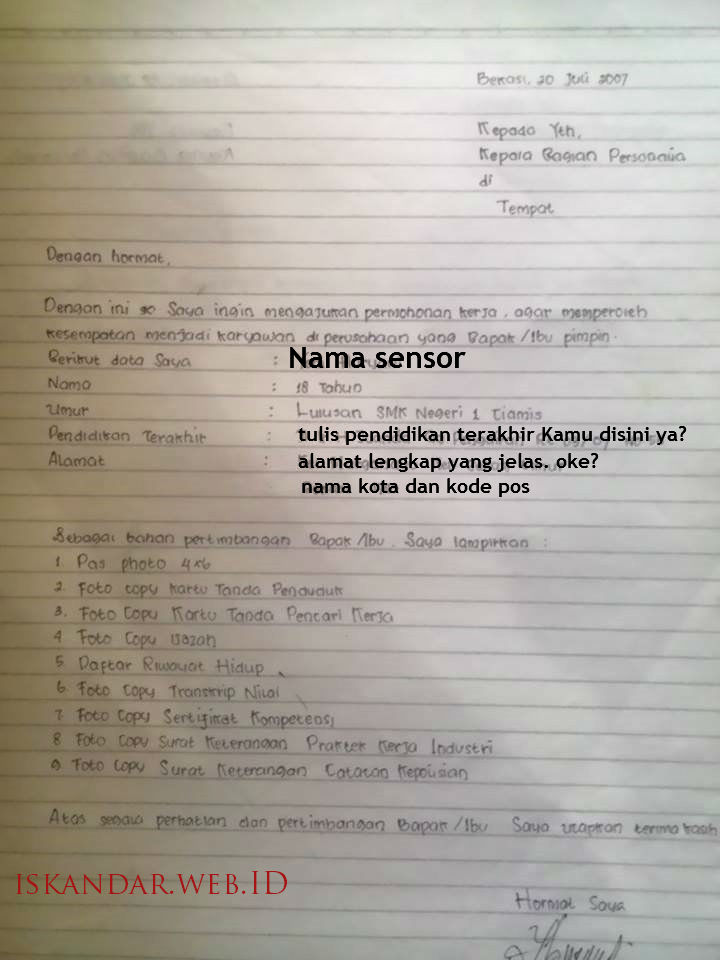 Bekasi, 20 Juli 2007
Kepada Yth,
Kepala Bagian Personalia
di
Tempat
Dengan hormat,
Dengan ini Saya ingin mengajukan permohonan kerja, agar memperoleh
kesempatan menjadi karyawan di perusahaan yang Bapak/Ibu pimpin.
Berikut data Saya : Nama sensor
Nama : 18 Tahun
Umur : Lulusan SMK Negeri 1 Ciamis
Pendidikan Terakhir : tulis pendidikan terakhir Kamu disini ya?
Alamat : alamat lengkap yang jelas. oke?
nama kota dan kode pos
Sebagai bahan pertimbangan Bapak/Ibu, Saya lampirkan :
1. Pas photo 4x6
2. Foto copy Kartu Tanda Penduduk
3. Foto Copy Kartu Tanda Pencari Kerja
4 Foto Copy Ijazah
5. Daftar Riwayat Hidup
6. Foto Copy Transkrip Nilai
7. Foto Copy Sertifikat Kompetensi
8 Foto Copy Surat Keterangan Praktek Kerja Industri
9 Foto Copy Surat Keterangan Catatan Kepolisian
Atas segala perhatian dan pertimbangan Bapak/Ibu Saya ucapkan terima kasih
ISKANDAR.WEB.ID
Hormat Saya